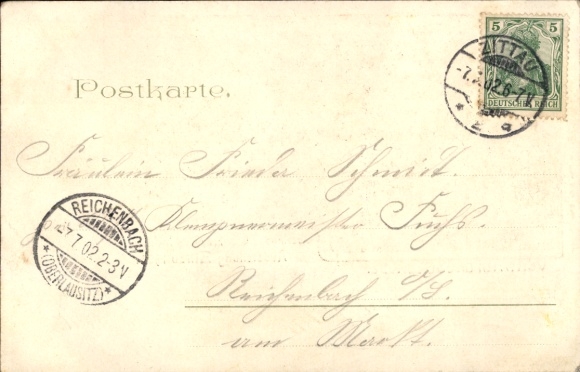 5 5
DEUTSCHES REICH
ZITTAU
-7.7.02.6-7V.
* 2 a
Postkarte.
Fräulein Frieda Schmidt.
Klempnermeister Fuchs.
Reichenbach O/L.
am Markt.
REICHENBACH
-7.7.02.2-3V
*(OBERLAUSITZ)*